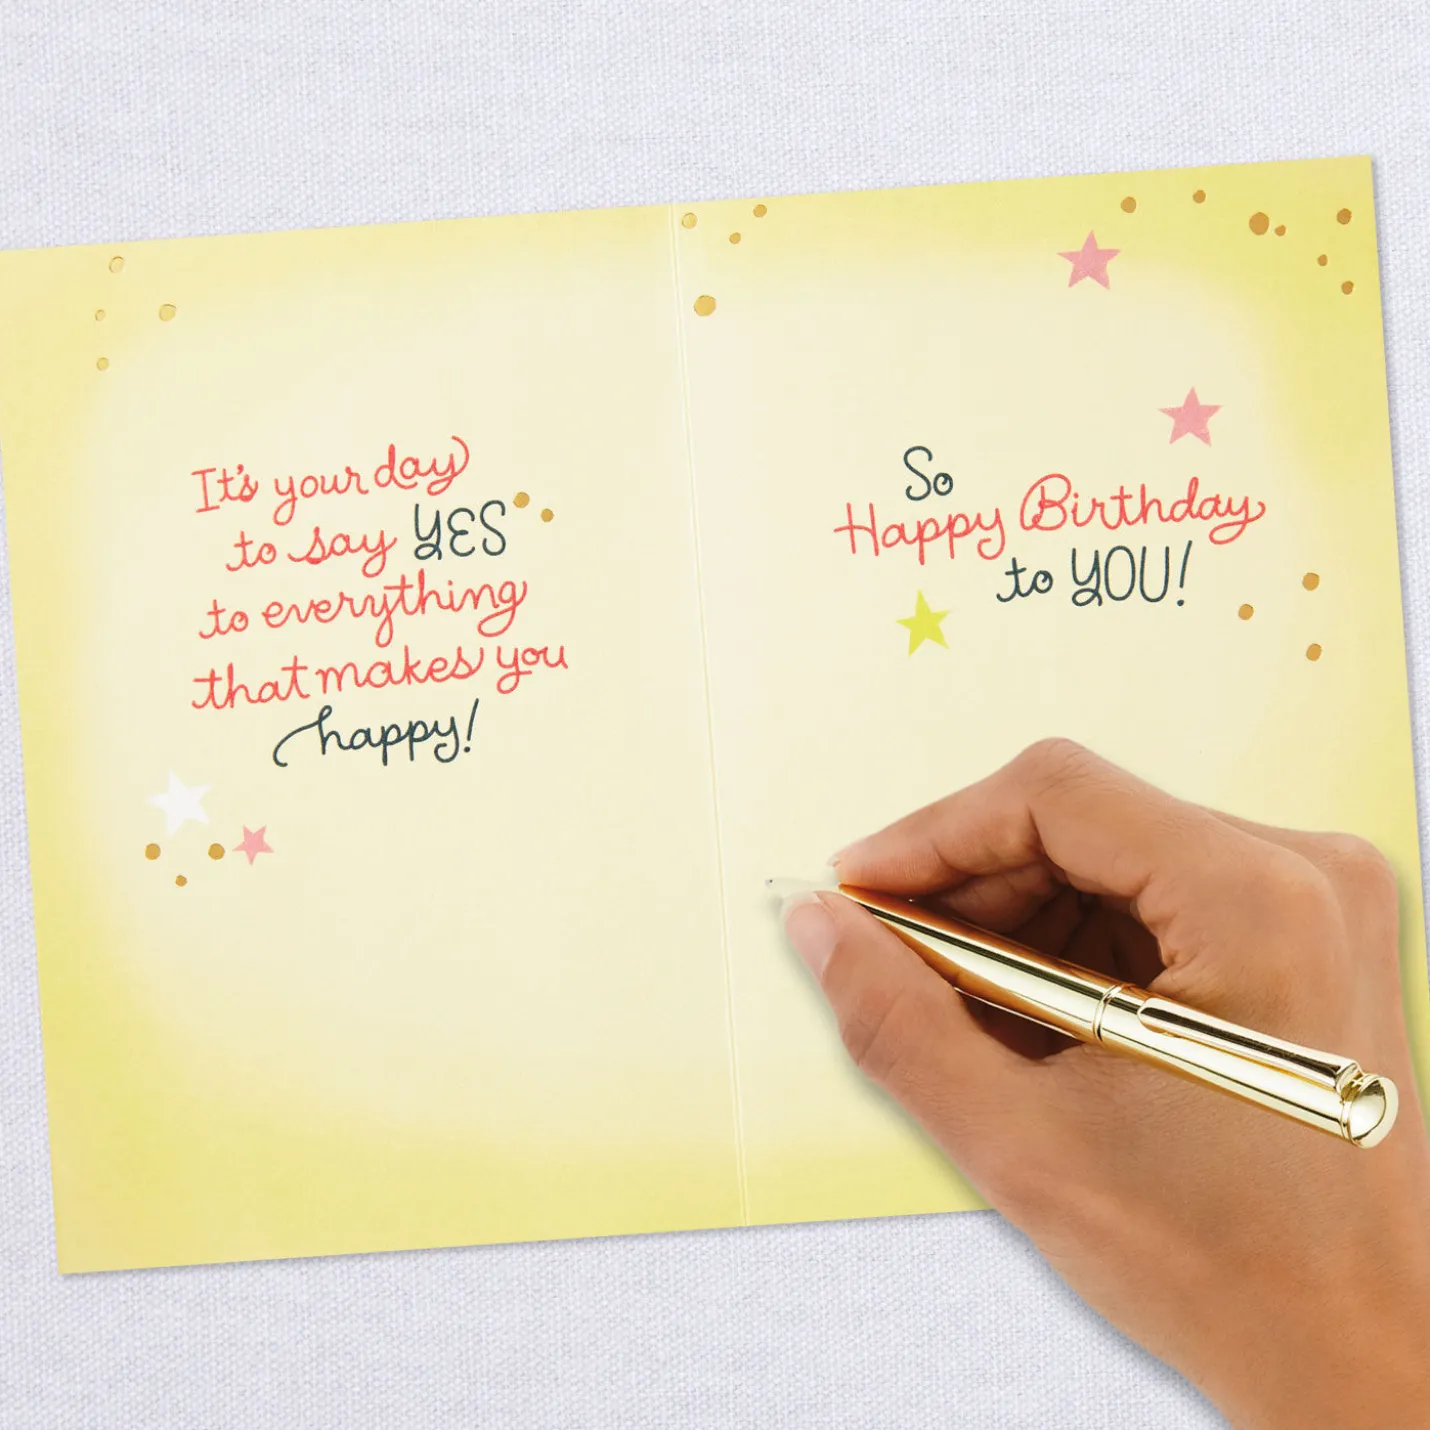 It's your day
to say YES
to everything
that makes you
happy!
So
Happy Birthday
to YOU!